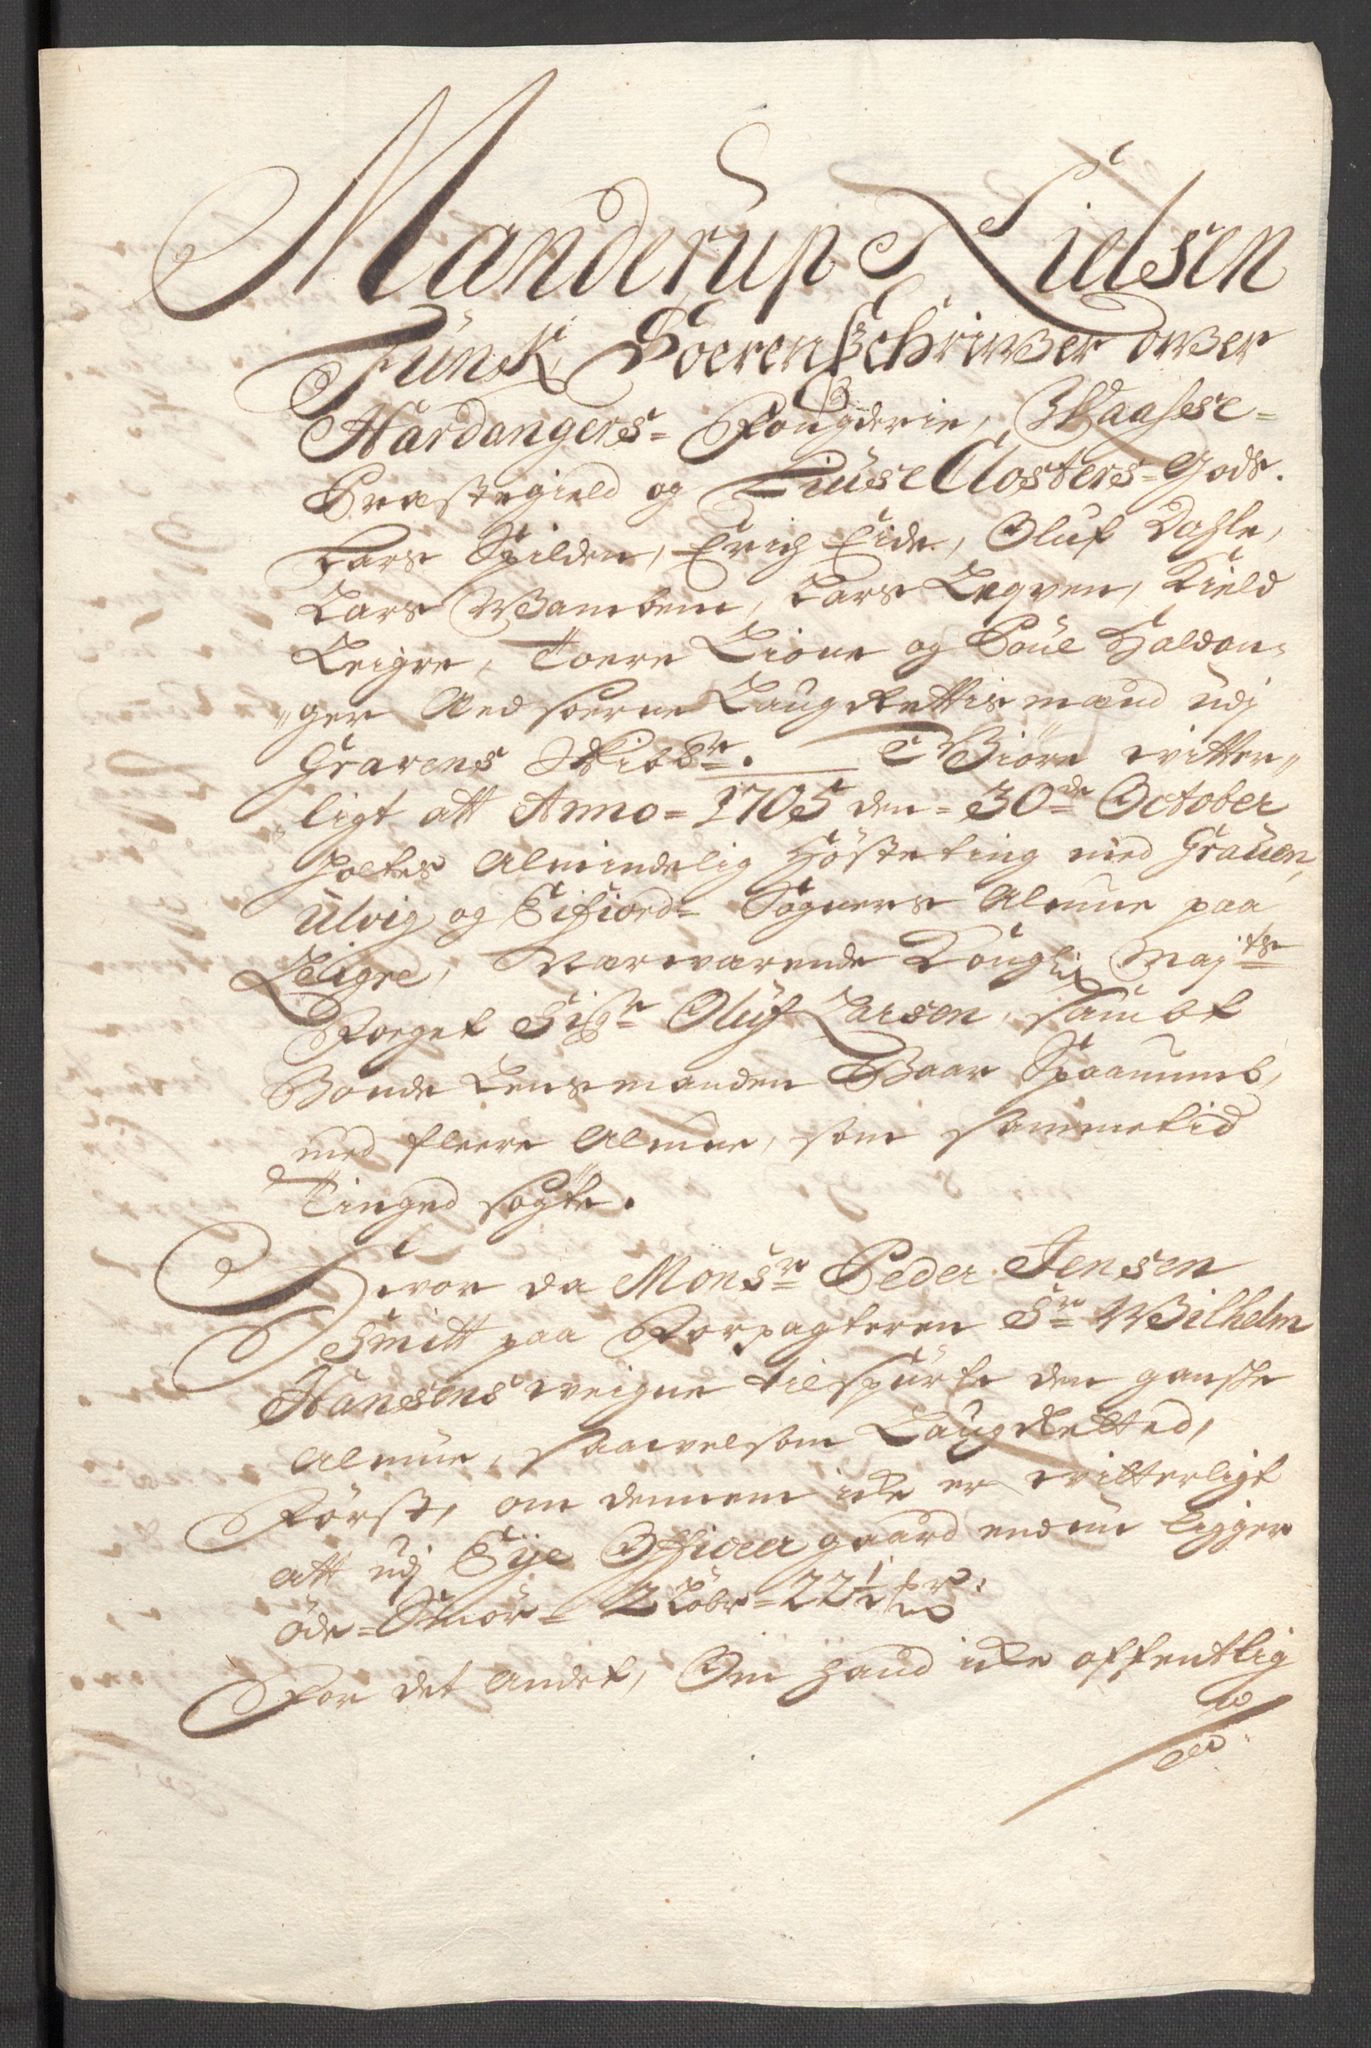 Manderup Nielsen
Funk Soerenschriwer ower
Hardangers= Fougderie, Waasse=
Præstegield og Liuse Closters= Gods.
Lars Spilden, Erich Eide, Oluf Dahle,
Lars Wambem, Lars Legven, Kield
Leigre, Toere Lione og Poul Haldan„
„ger Æed soerne Laug Rettis mænd udj
Gravens Skibbr. Giøre witter„
„ligt att Anno= 1705 den= 30de October
holtes Almindelig Høsteting med Graven,
Ulvig og Eifiord= Sogners Almue paa
Leigre, Nærwærende Konglig Majts
Foeget Sigr Oluf Larsen, sambt
Bonde Lensmanden Baar Spaanumb,
med fleere Almue, som sammetid
Tinged søgte.
Hvor da Monsr Peder Jensen
Smitt paa Forpagteren Sr Wilhelm
Hansens weigne tilspurte den gandske
Almue, saawelsom Laug Retted,
Først, om dennem icke er witterligt
att udj Eije Officer gaard endnu ligger
øde= Smør= 2 Løbr= 22½ mrk
For det Andet, Om hand icke offentlig